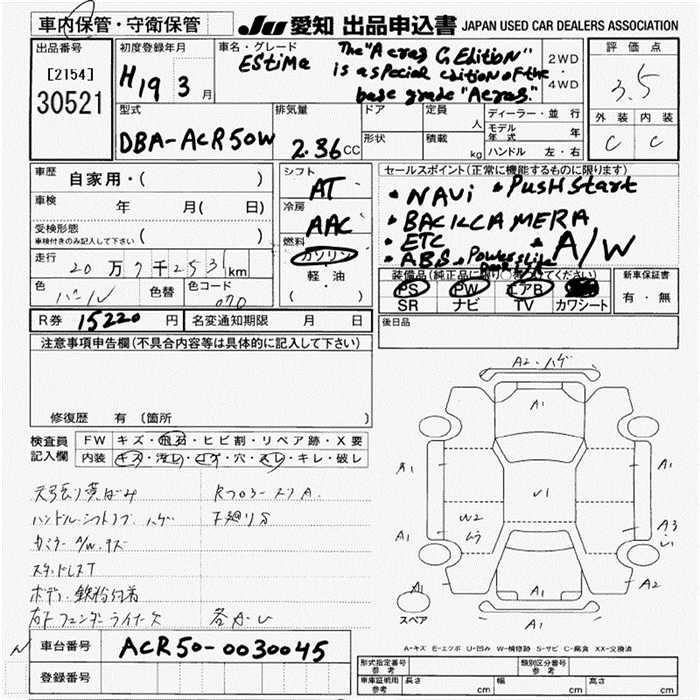 車内保管・守衛保管
JU 愛知 出品申込書 JAPAN USED CAR DEALERS ASSOCIATION
出品番号
[2154]
30521
初度登録年月
H19 3 月
車名・グレード
EStiMa
The "Aeras G Edition"
is a special edition of the
base grade "Aeras."
2WD
・
4WD
評価点
3.5
外装 内装
C C
型式
DBA-ACR50W
排気量
2.36 CC
ドア
形状
定員
人
積載
kg
ディーラー・並行
モデル年式 年
ハンドル 左・右
車歴 自家用・( )
車検 年 月( 日)
受検形態
車検付きのみ記入して下さい ( )
走行 20万7千253km
色 パール 色替 色コード 070
シフト
AT
冷房
AAC
燃料
ガソリン
軽・油
( )
セールスポイント(正常に機能するものに限ります)
• NAVi • PusH Start
• BACKCAMERA
• ETC • A/W
• ABS • Powerslide
装備品(純正品に限り○をつけてください)
PS PW エアB
SR ナビ TV カワシート
新車保証書
有・無
R券 15220 円 名変通知期限 月 日
後日品
注意事項申告欄(不具合内容等は具体的に記入して下さい)
修復歴 有(箇所
検査員
記入欄
FW キズ・飛石・ヒビ割・リペア跡・X要
内装 キズ・汚レ・コゲ・穴・スレ・キレ・破レ
天張り黄ばみ
ハンドル・シフトノブ ハゲ 下廻りS
A/W キズ
スタッドレスT
ボディ鉄粉付着
右Fフェンダーライナーキズ
A2・ハゲ
A1
A1
A1
V1
W2
ムラ
A1
A3
A1
A2
A1
A1
スペア
A1
A-キズ E-エクボ U-凹み W-補修跡 S-サビ C-腐食 XX-交換済
車台番号 ACR50-0030045
登録番号
形式指定番号
参考
類別区分番号
参考
車庫証明用
参考
長さ cm 幅 cm 高さ cm